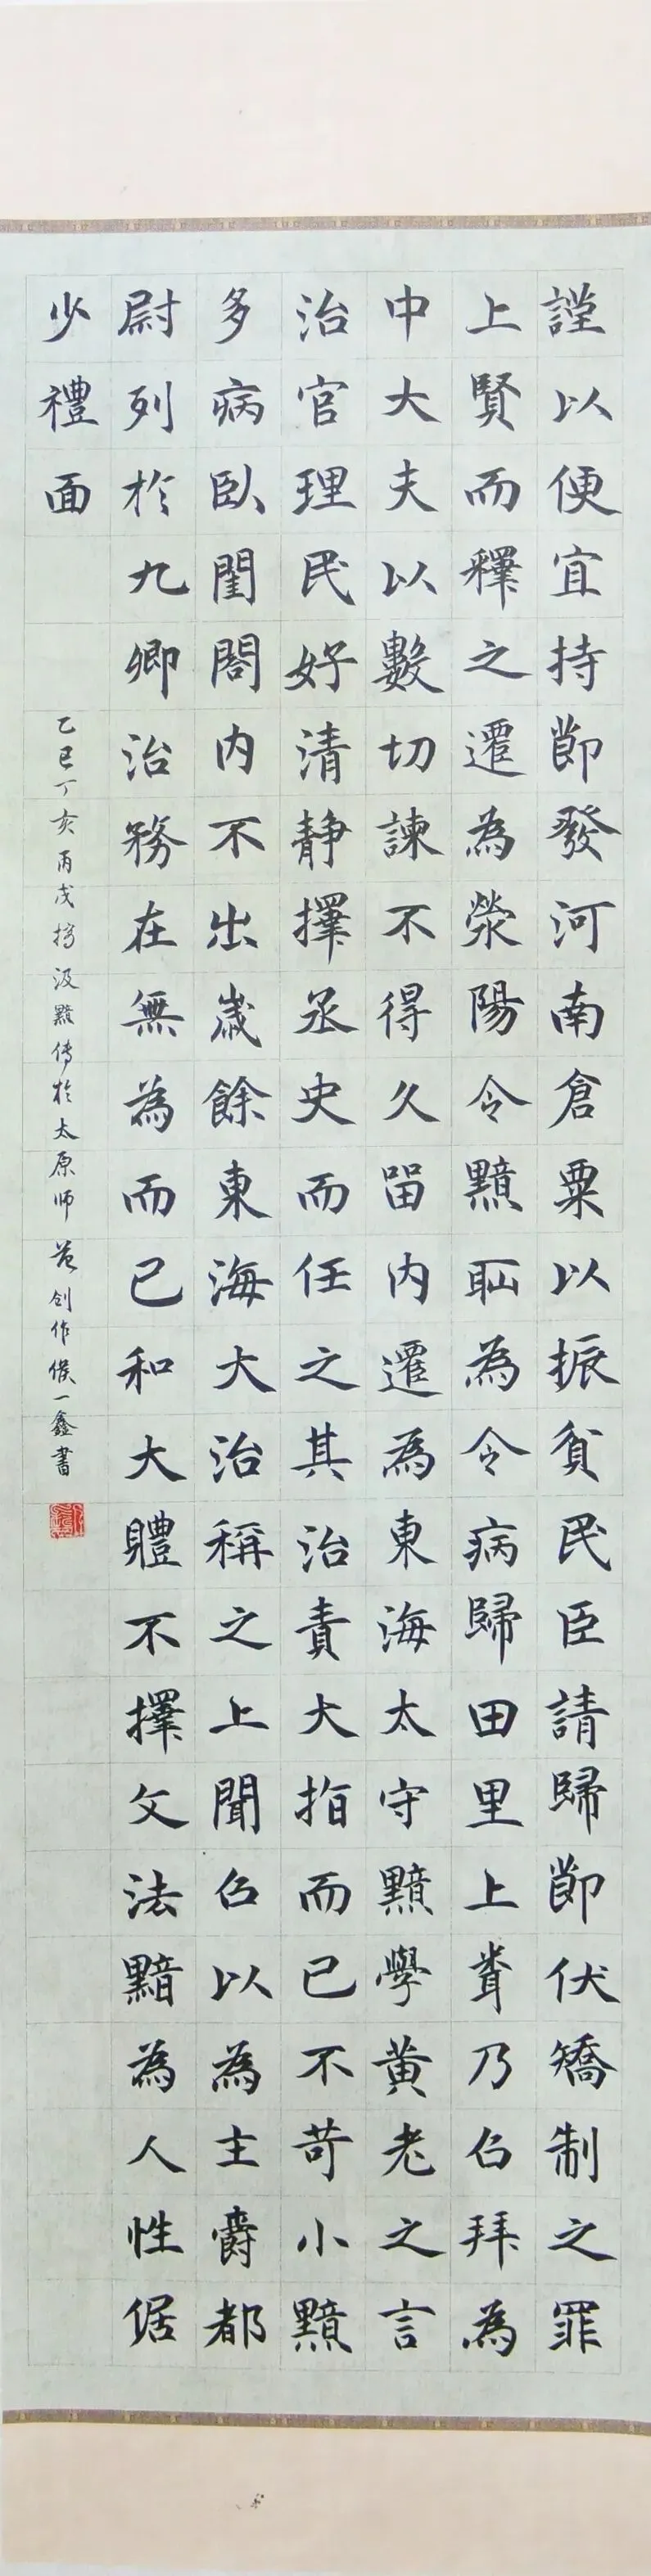 謹以便宜持節發河南倉粟以振貧民臣請歸節伏矯制之罪
上賢而釋之遷為滎陽令黯耻為令病歸田里上聞乃召拜為
中大夫以數切諫不得久留内遷為東海太守黯學黃老之言
治官理民好清靜擇丞史而任之其治責大指而已不苛小黯
多病臥閨閤内不出歲餘東海大治稱之上聞召以為主爵都
尉列於九卿治務在無為而已和大軆不擇文法黯為人性倨
少禮面
乙巳丁亥丙戌摘汲黯传於太原师范创作侯一鑫書